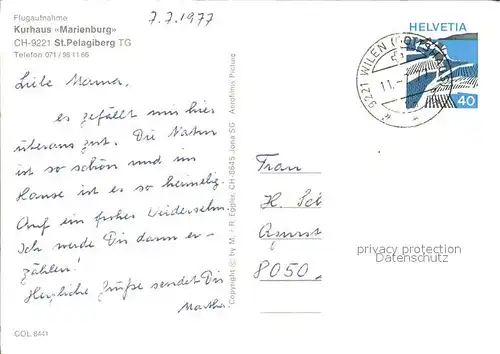 Flugaufnahme
Kurhaus «Marienburg»
CH-9221 St.Pelagiberg TG
Telefon 071 / 98 11 66
7.7.1977
Liebe Mama.
es gefällt mir hier
überaus gut. Die Natur
ist so schön und im
Hause ist es so heimelig.
Auf ein frohes Wiedersehn.
Ich werde Dir dann er-
zählen!
Herzliche Grüße sendet Dir
Martha.
COL 8441
Copyright © by M. + R. Eggler, CH-8645 Jona SG Aerofilms Picture
HELVETIA
40
9221 WILEN (GOTTSHAUS)
11.-
Frau
H.
August
8050
privacy protection
Datenschutz